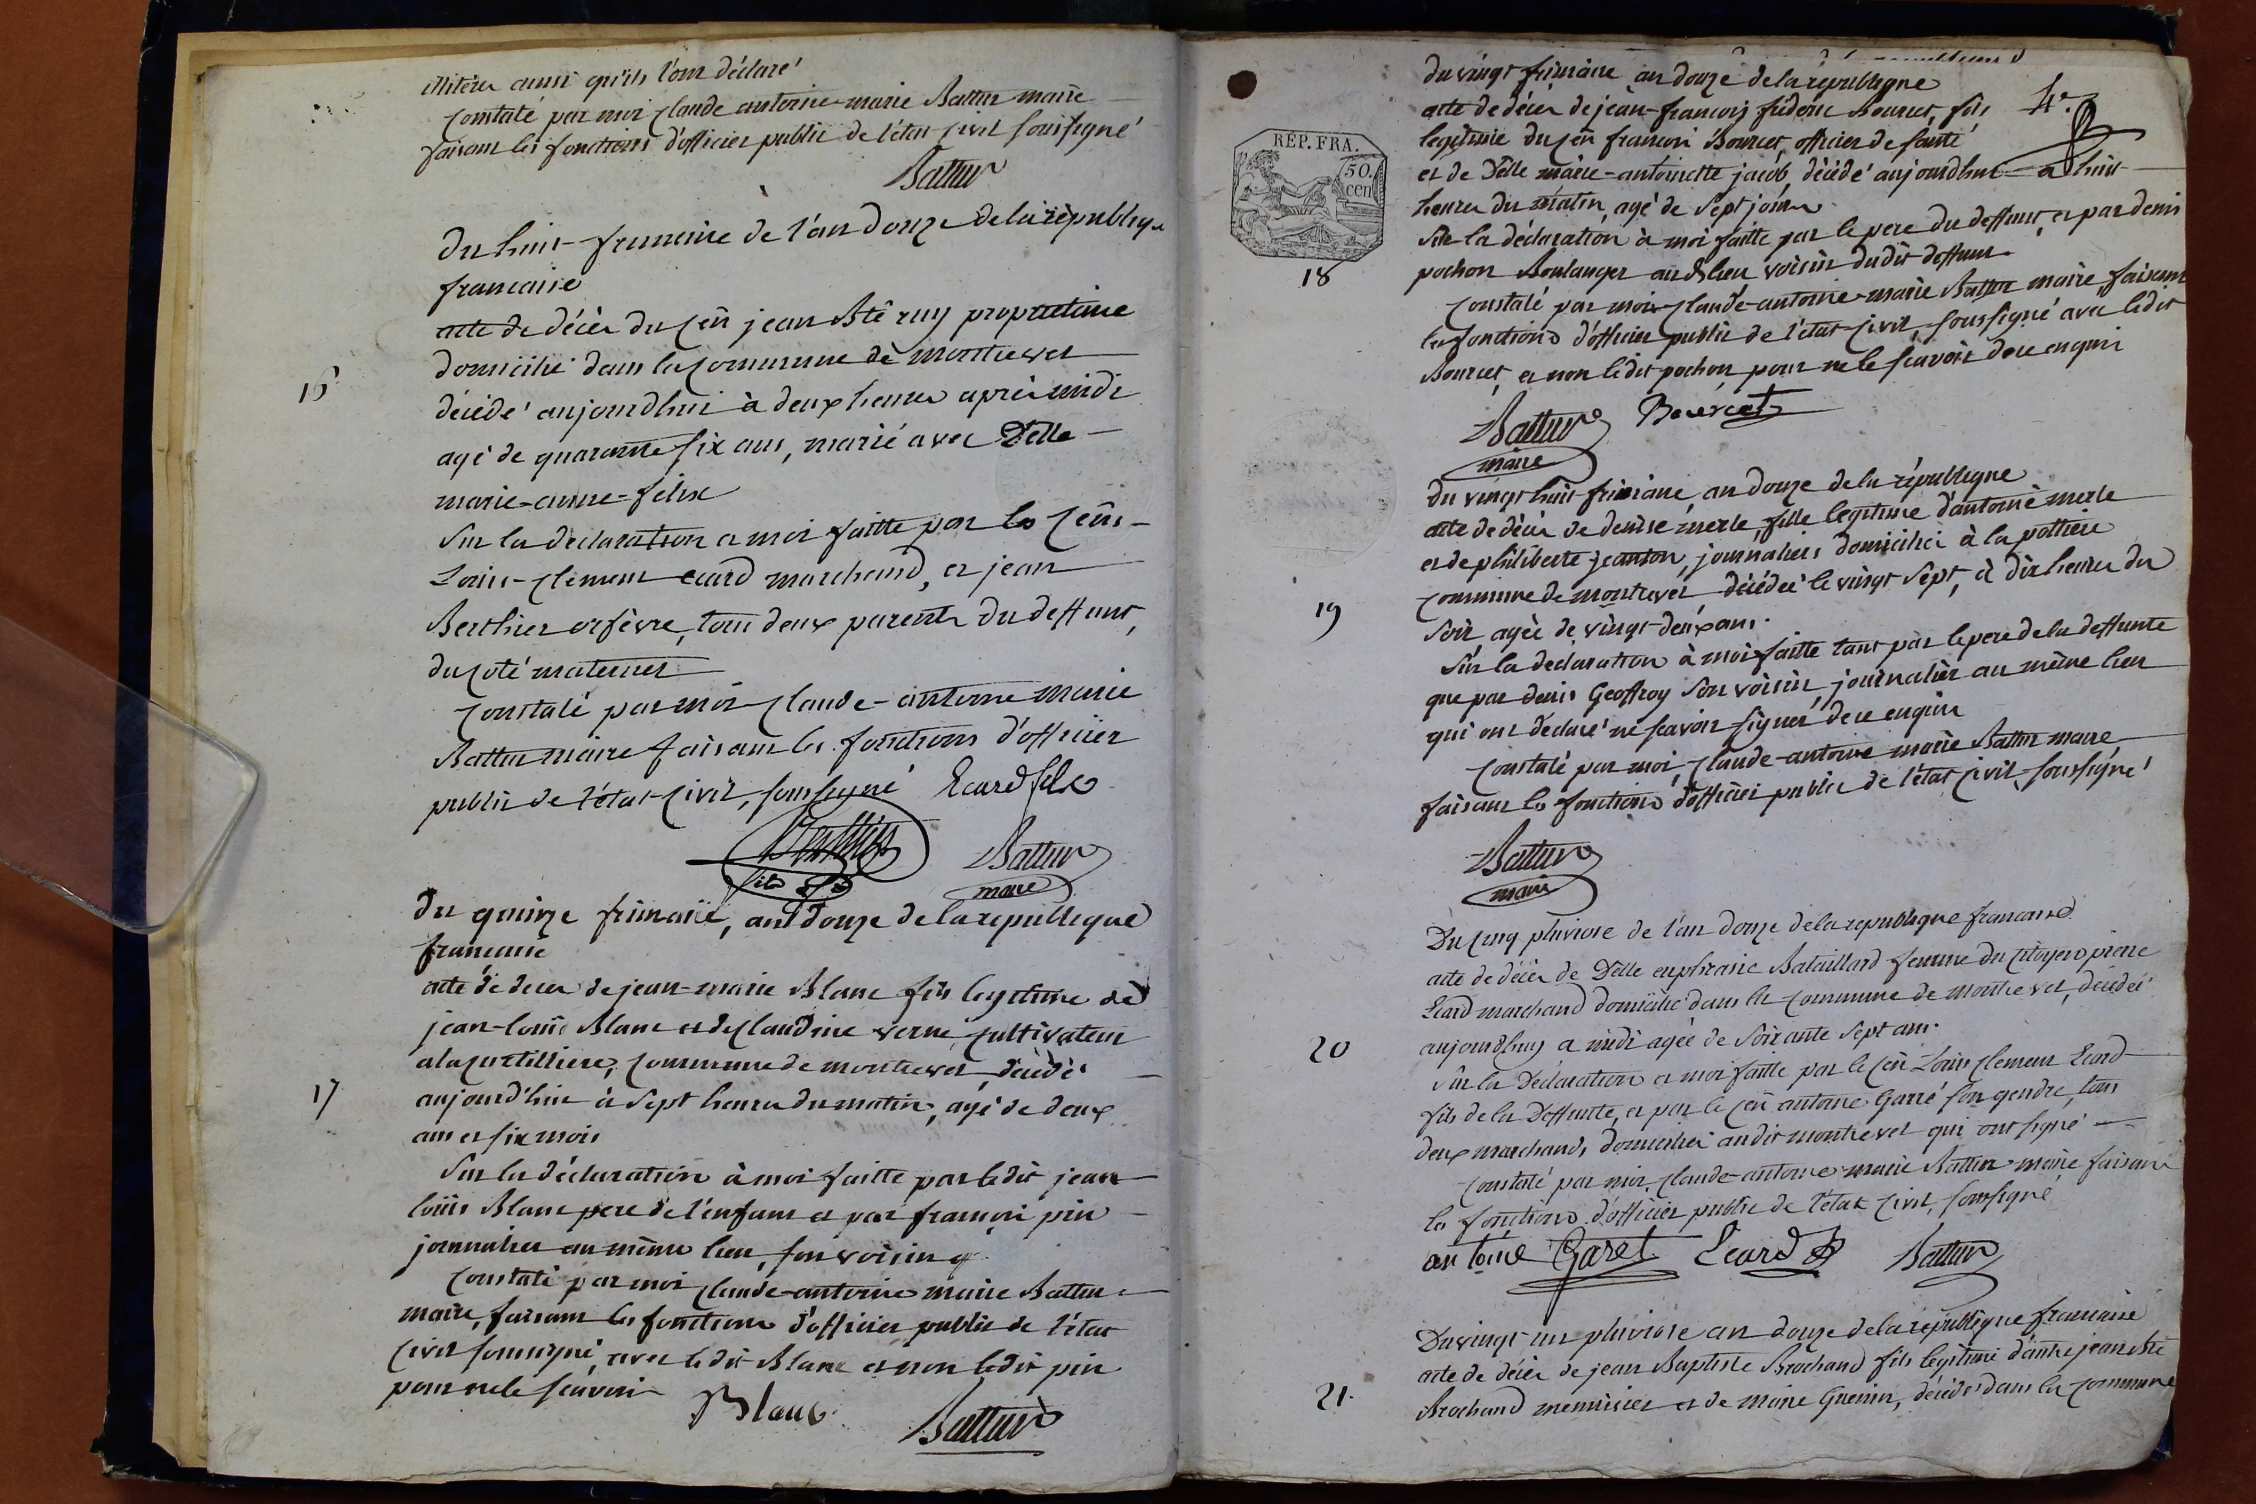 illitérés ainsi qu'ils l'ont déclaré
Constaté par moi Claude antoine-marie Battur maire
faisant les fonctions d'officier public de l'état-civil soussigné
Battur
Du huit frimaire de l'an Douze de la république
francaise
16
acte de décès du Cen jean Bte ruy propriétaire
domicilié dans la Commune de montrevel
décédé aujourdhui à deux heures après midi
agé de quarante six ans, marié avec Delle
marie-anne-félix
Sur la declaration a moi faitte par les Cens
Louis-Clement ecard marchand, et jean
Berthier orfèvre, tous deux parents du deffunt,
du coté maternel
Constaté par moi Claude-antoine marie
Battur maire faisant les fonctions d'officier
public de l'état-Civil, soussigné Ecard fils
Berthier
fils
Battur
maire
du quinze frimaire, an douze de la republique
francaise
17
acte de deces de jean-marie Blanc fils legitime de
jean-louis Blanc et de Claudine verne, Cultivateur
a la Cuetilliere, Commune de montrevel, décédé
aujourd'hui à sept heures du matin, agé de deux
ans et six mois
Sur la déclaration à moi faitte par ledit jean
louis Blanc pere de l'enfant et par francois pin
journalier au même lieu, son voisin
Constaté par moi Claude-antoine marie Battur
maire, faisant les fonctions d'officier public de l'état
Civil soussigné, avec ledit Blanc et non ledit pin
pour ne le scavoir
Blanc
Battur
4e.
du vingt frimaire an douze de la république
acte de décès de jean-francois fréderic Bourcet, fils
legitime du Cen francois Bourcet, officier de santé
et de Delle marie-antoinette jacob, décédé aujourdhui à huit
heures du matin, agé de sept jours
RÉP. FRA.
50.
cen
18
Sur la déclaration à moi faitte par le pere du deffunt, et par denis
pochon Boulanger au dt lieu voisin dudit deffunt.
Constaté par moi Claude-antoine-marie Battur maire, faisant
les fonctions d'officier public de l'état-Civil, soussigné avec ledit
Bourcet, et non ledit pochon pour ne le scavoir de ce enquis
Battur
maire
Bourcet
du vingt huit frimaire, an douze de la république
acte de décès de denise merle, fille legitime d'antoine merle
et de philiberte jeanton, journaliers domiciliés à la pottiere
19
Commune de montrevel, décédée le vingt sept, à dix heures du
soir agée de vingt-deux ans.
Sur la declaration à moi faitte tant par le pere de la deffunte
que par denis Geoffroy son voisin, journalier au même lieu
qui ont déclaré ne scavoir signer de ce enquis
Constaté par moi, Claude-antoine marie Battur maire
faisant les fonctions d'officier public de l'état Civil, soussigné
Battur
maire
Du Cinq pluviose de l'an douze de la republique francaise
acte de décès de Delle euphrasie Bataillard femme du Citoyen pierre
Ecard marchand domicilié dans la Commune de montrevel, décédée
20
aujourdhuy a midi agée de soixante sept ans.
Sur la Déclaration a moi faitte par le Cen Louis Clement Ecard
fils de la Deffunte, et par le Cen antoine Garré son gendre, tous
deux marchands, domiciliés audit montrevel qui ont signé
Constaté par moi, Claude-antoine marie Battur maire faisant
les fonctions d'officier public de l'état Civil, soussigné
antoine Garet Ecard Battur
Du vingt un pluviose an douze de la république francaise
acte de décès de jean Baptiste Brochand fils legitime d'autre jean Bte
21.
Brochand menuisier et de marie Guenin, décédé dans la Commune